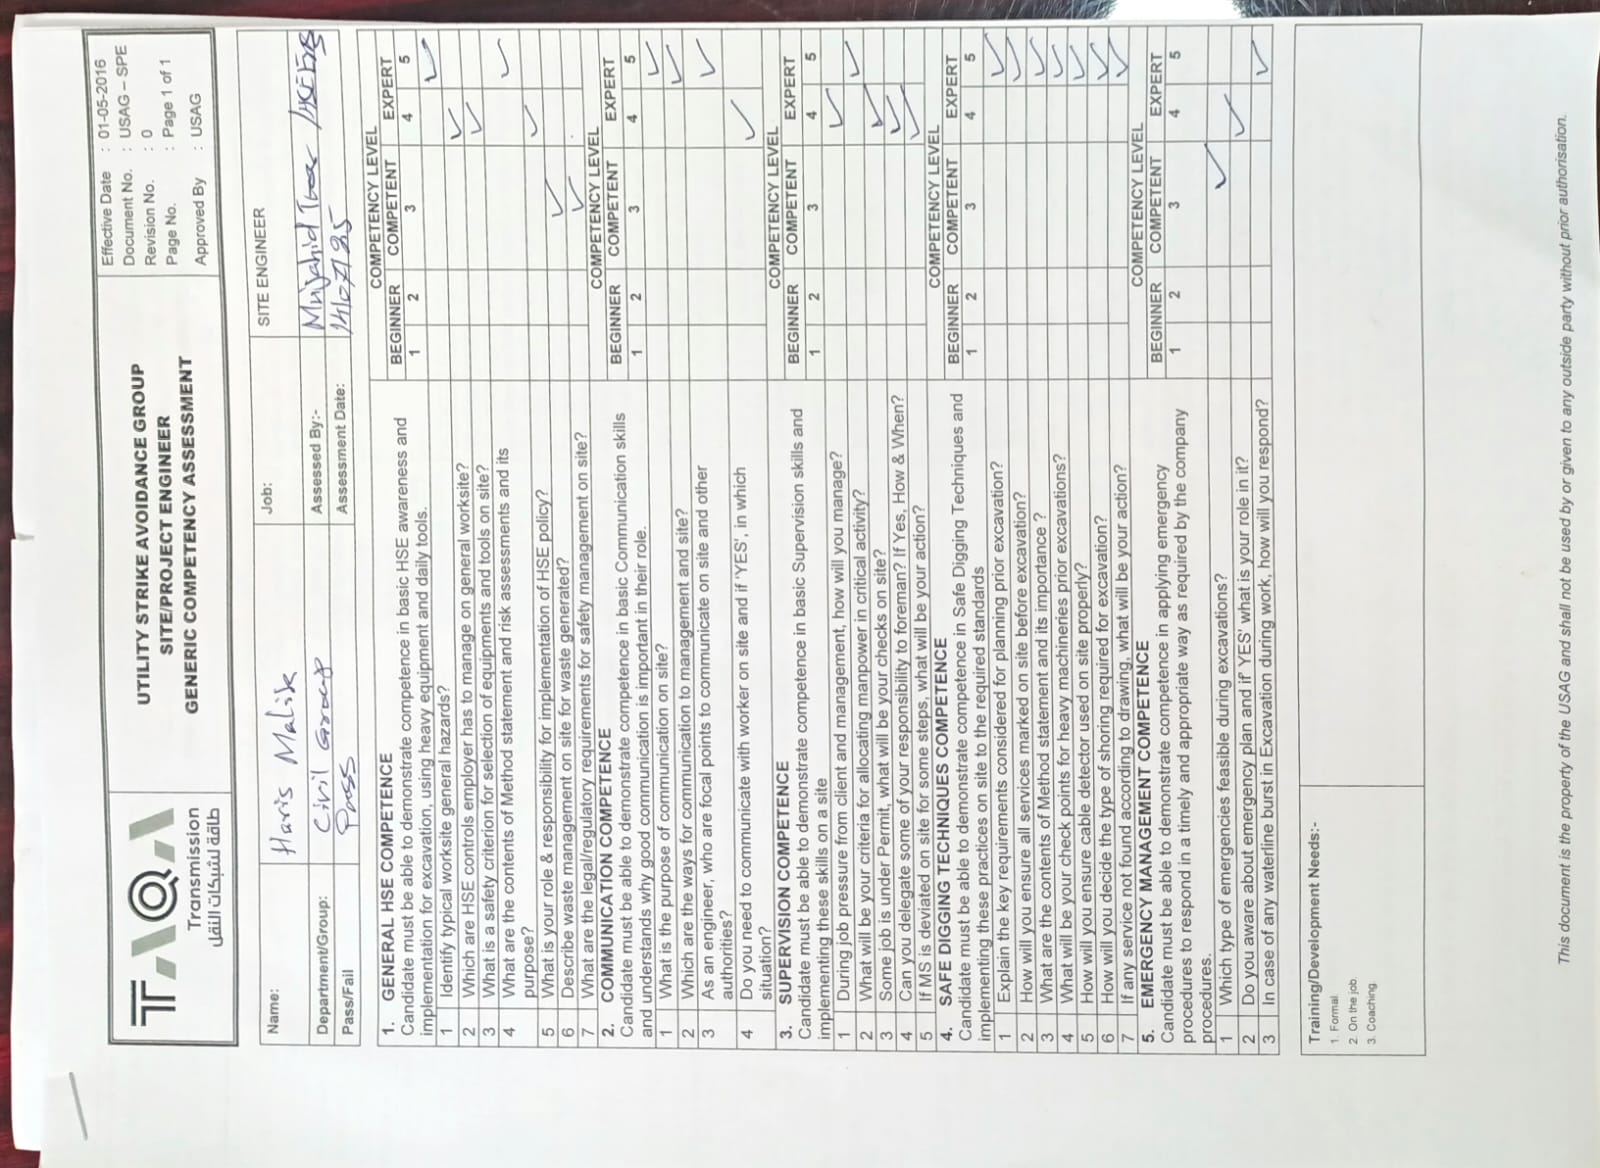 TAQA
Transmission
طاقة لشبكات النقل
UTILITY STRIKE AVOIDANCE GROUP
SITE/PROJECT ENGINEER
GENERIC COMPETENCY ASSESSMENT
Effective Date : 01-05-2016
Document No. : USAG – SPE
Revision No. : 0
Page No. : Page 1 of 1
Approved By : USAG
Name: Haris Malik Job: SITE ENGINEER
Department/Group: Civil Group Assessed By:- Mujahid /HSE
Pass/Fail Pass Assessment Date: 14/07/25
1. GENERAL HSE COMPETENCE
Candidate must be able to demonstrate competence in basic HSE awareness and
implementation for excavation, using heavy equipment and daily tools.
COMPETENCY LEVEL
BEGINNER COMPETENT EXPERT
1 2 3 4 5
1 Identify typical worksite general hazards?
2 Which are HSE controls employer has to manage on general worksite?
3 What is a safety criterion for selection of equipments and tools on site?
4 What are the contents of Method statement and risk assessments and its
purpose?
5 What is your role & responsibility for implementation of HSE policy?
6 Describe waste management on site for waste generated?
7 What are the legal/regulatory requirements for safety management on site?
2. COMMUNICATION COMPETENCE
Candidate must be able to demonstrate competence in basic Communication skills
and understands why good communication is important in their role.
COMPETENCY LEVEL
BEGINNER COMPETENT EXPERT
1 2 3 4 5
1 What is the purpose of communication on site?
2 Which are the ways for communication to management and site?
3 As an engineer, who are focal points to communicate on site and other
authorities?
4 Do you need to communicate with worker on site and if 'YES', in which
situation?
3. SUPERVISION COMPETENCE
Candidate must be able to demonstrate competence in basic Supervision skills and
implementing these skills on a site
COMPETENCY LEVEL
BEGINNER COMPETENT EXPERT
1 2 3 4 5
1 During job pressure from client and management, how will you manage?
2 What will be your criteria for allocating manpower in critical activity?
3 Some job is under Permit, what will be your checks on site?
4 Can you delegate some of your responsibility to foreman? If Yes, How & When?
5 If MS is deviated on site for some steps, what will be your action?
4. SAFE DIGGING TECHNIQUES COMPETENCE
Candidate must be able to demonstrate competence in Safe Digging Techniques and
implementing these practices on site to the required standards
COMPETENCY LEVEL
BEGINNER COMPETENT EXPERT
1 2 3 4 5
1 Explain the key requirements considered for planning prior excavation?
2 How will you ensure all services marked on site before excavation?
3 What are the contents of Method statement and its importance ?
4 What will be your check points for heavy machineries prior excavations?
5 How will you ensure cable detector used on site properly?
6 How will you decide the type of shoring required for excavation?
7 If any service not found according to drawing, what will be your action?
5. EMERGENCY MANAGEMENT COMPETENCE
Candidate must be able to demonstrate competence in applying emergency
procedures to respond in a timely and appropriate way as required by the company
procedures.
COMPETENCY LEVEL
BEGINNER COMPETENT EXPERT
1 2 3 4 5
1 Which type of emergencies feasible during excavations?
2 Do you aware about emergency plan and if YES' what is your role in it?
3 In case of any waterline burst in Excavation during work, how will you respond?
Training/Development Needs:-
1. Formal.
2. On the job.
3. Coaching.
This document is the property of the USAG and shall not be used by or given to any outside party without prior authorisation.